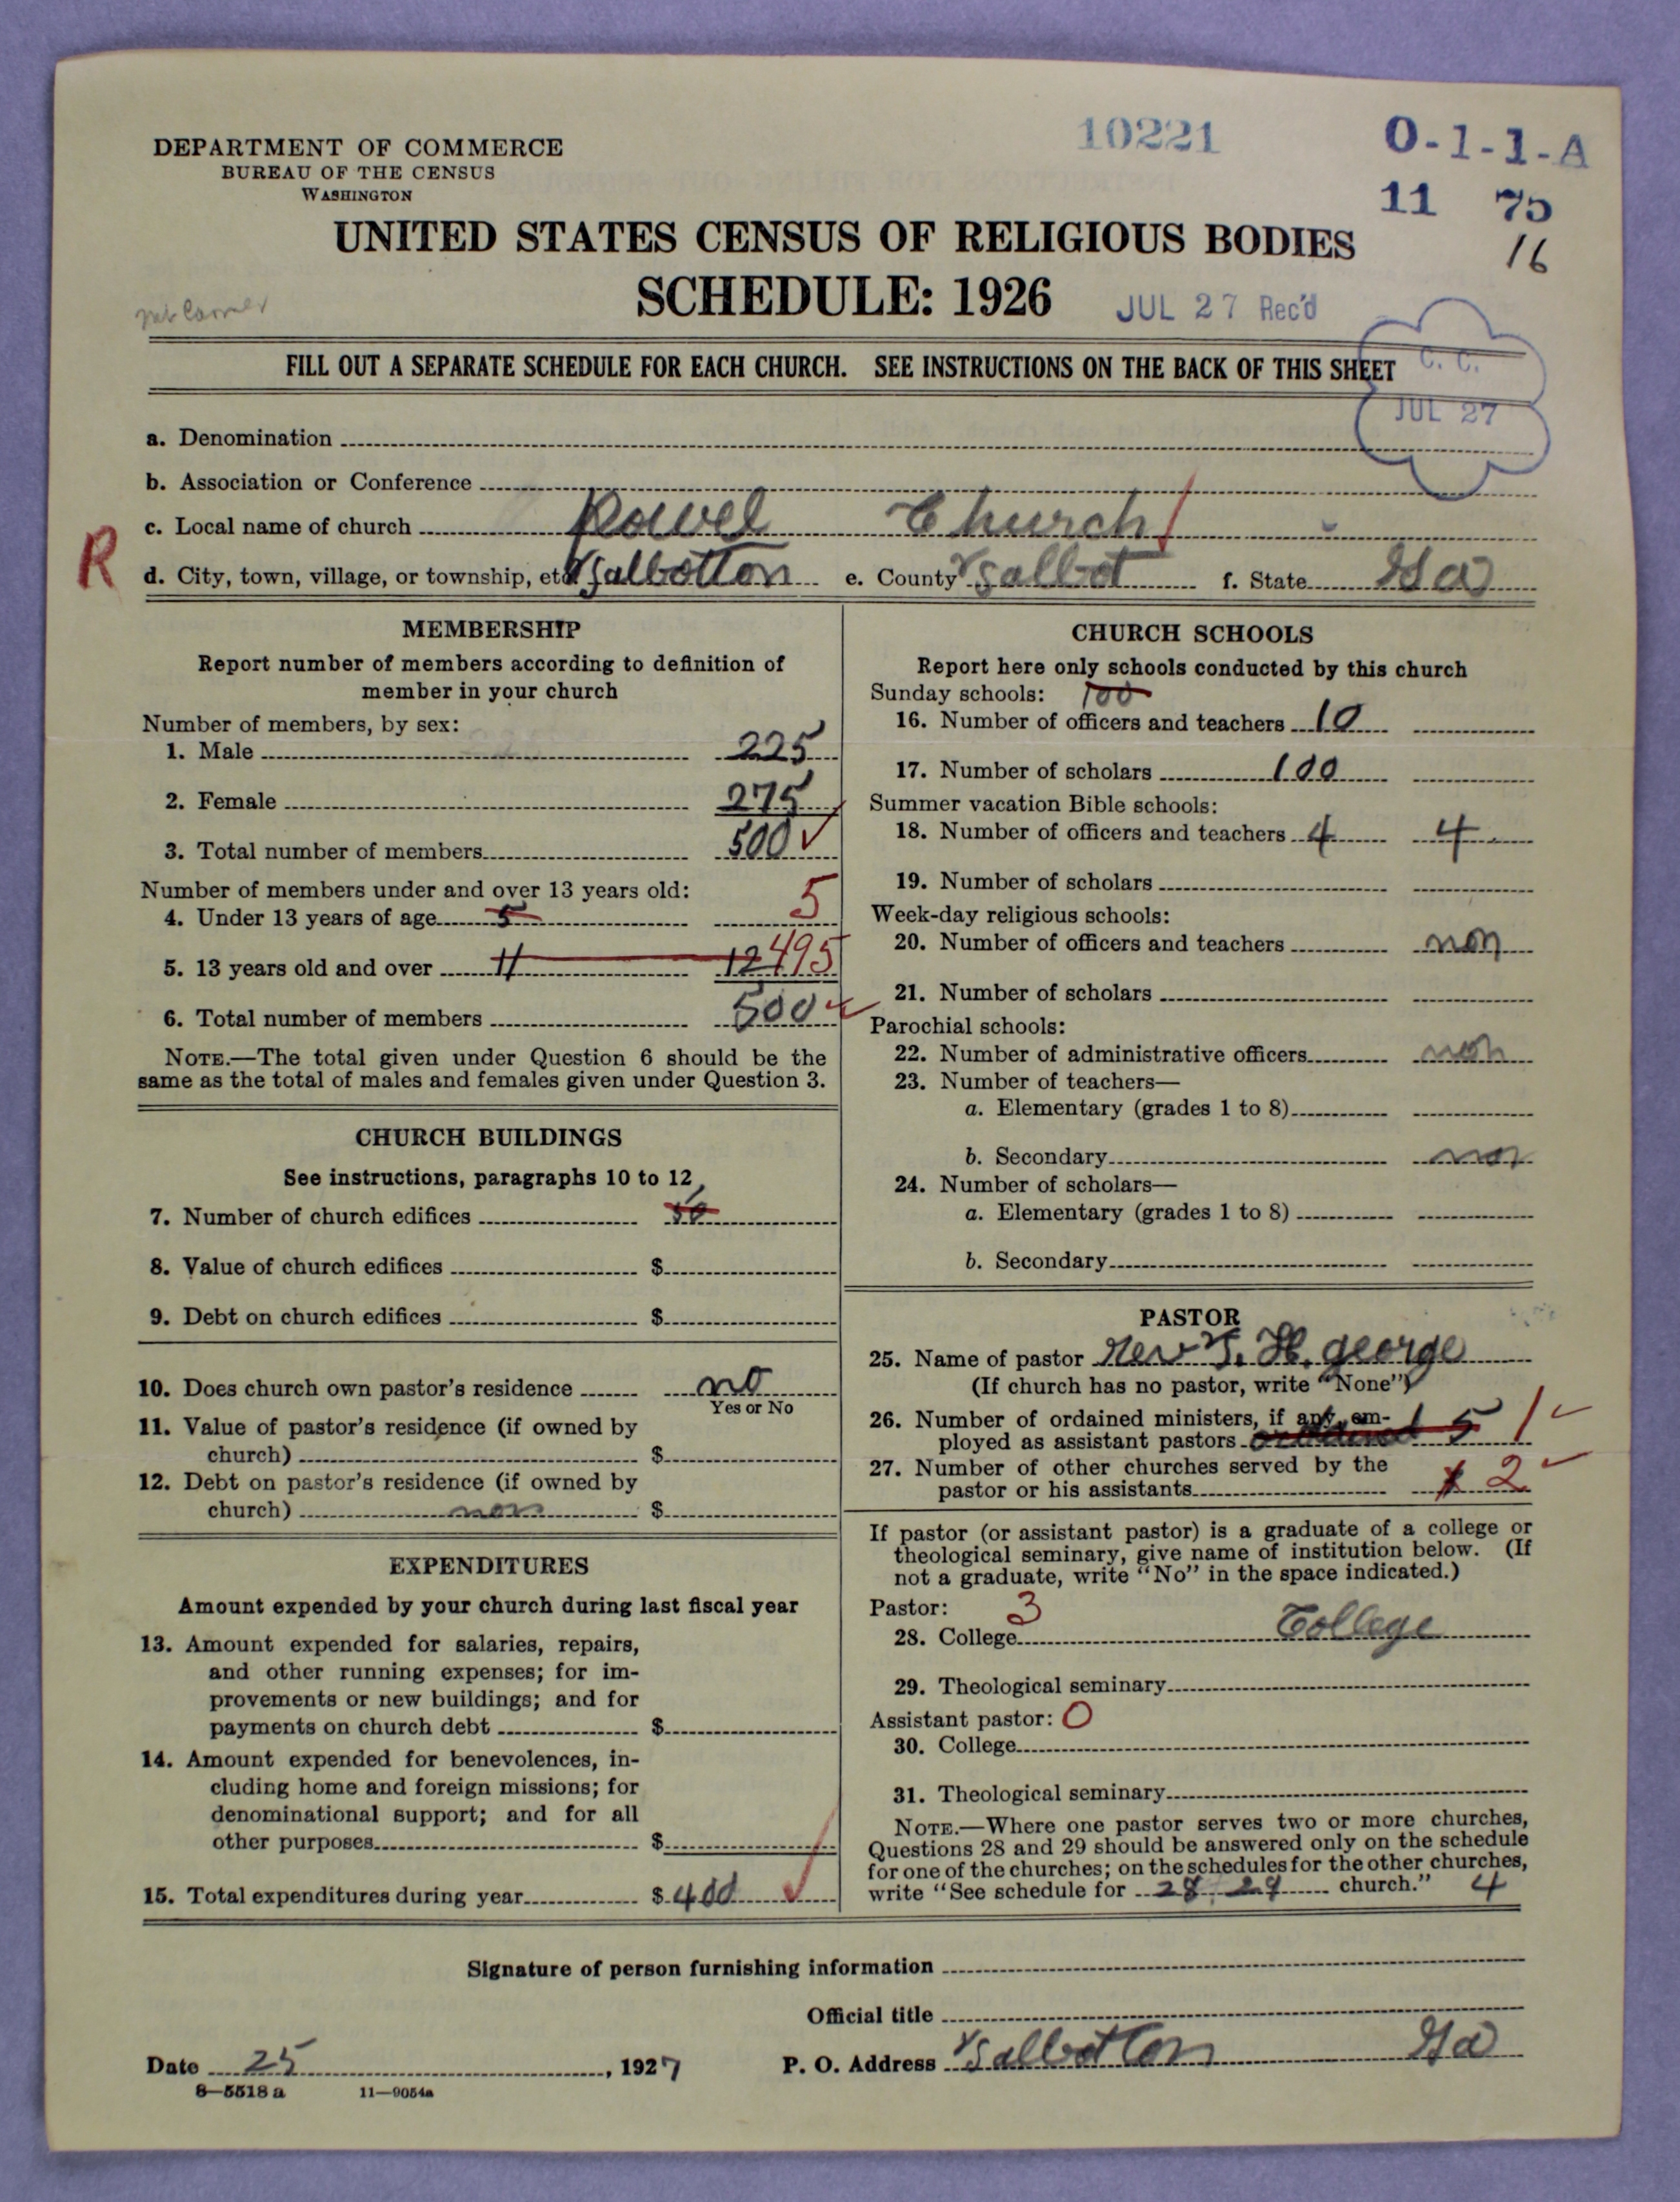 10221
O-1-1-A
DEPARTMENT OF COMMERCE
BUREAU OF THE CENSUS
WASHINGTON
11 75
16
UNITED STATES CENSUS OF RELIGIOUS BODIES
SCHEDULE: 1926
JUL 27 Rec'd
FILL OUT A SEPARATE SCHEDULE FOR EACH CHURCH. SEE INSTRUCTIONS ON THE BACK OF THIS SHEET
C. C.
JUL 27
a. Denomination
b. Association or Conference
c. Local name of church Powel Church
R
d. City, town, village, or township, etc. Talbotton e. County Talbot f. State Ga
MEMBERSHIP
Report number of members according to definition of
member in your church
Number of members, by sex:
1. Male 225
2. Female 275
3. Total number of members 500
Number of members under and over 13 years old:
4. Under 13 years of age 5 5
5. 13 years old and over 11 12 495
6. Total number of members 500
NOTE.—The total given under Question 6 should be the
same as the total of males and females given under Question 3.
CHURCH BUILDINGS
See instructions, paragraphs 10 to 12
7. Number of church edifices
8. Value of church edifices $
9. Debt on church edifices $
10. Does church own pastor's residence no
Yes or No
11. Value of pastor's residence (if owned by
church) $
12. Debt on pastor's residence (if owned by
church) non $
EXPENDITURES
Amount expended by your church during last fiscal year
13. Amount expended for salaries, repairs,
and other running expenses; for im-
provements or new buildings; and for
payments on church debt $
14. Amount expended for benevolences, in-
cluding home and foreign missions; for
denominational support; and for all
other purposes $
15. Total expenditures during year $ 400
CHURCH SCHOOLS
Report here only schools conducted by this church
Sunday schools: 100
16. Number of officers and teachers 10
17. Number of scholars 100
Summer vacation Bible schools:
18. Number of officers and teachers 4 4
19. Number of scholars
Week-day religious schools:
20. Number of officers and teachers non
21. Number of scholars
Parochial schools:
22. Number of administrative officers non
23. Number of teachers—
a. Elementary (grades 1 to 8)
b. Secondary non
24. Number of scholars—
a. Elementary (grades 1 to 8)
b. Secondary
PASTOR
25. Name of pastor Rev T. H. george
(If church has no pastor, write "None")
26. Number of ordained ministers, if any, em-
ployed as assistant pastors 5 1
27. Number of other churches served by the
pastor or his assistants 2
If pastor (or assistant pastor) is a graduate of a college or
theological seminary, give name of institution below. (If
not a graduate, write "No" in the space indicated.)
Pastor: 3
28. College College
29. Theological seminary
Assistant pastor: 0
30. College
31. Theological seminary
NOTE.—Where one pastor serves two or more churches,
Questions 28 and 29 should be answered only on the schedule
for one of the churches; on the schedules for the other churches,
write "See schedule for 28, 29 church." 4
Signature of person furnishing information
Official title
Date 25, 1927 P. O. Address Talbotton Ga
8—5518 a 11—9054a